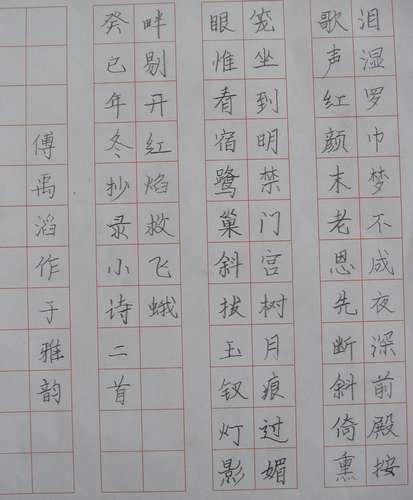 泪湿罗巾梦不成夜深前殿按
歌声红颜未老恩先断斜倚熏
笼坐到明禁门宫树月痕过媚
眼惟看宿鹭巢斜拔玉钗灯影
畔剔开红焰救飞蛾
癸巳年冬抄录小诗二首
傅禹滔作于雅韵